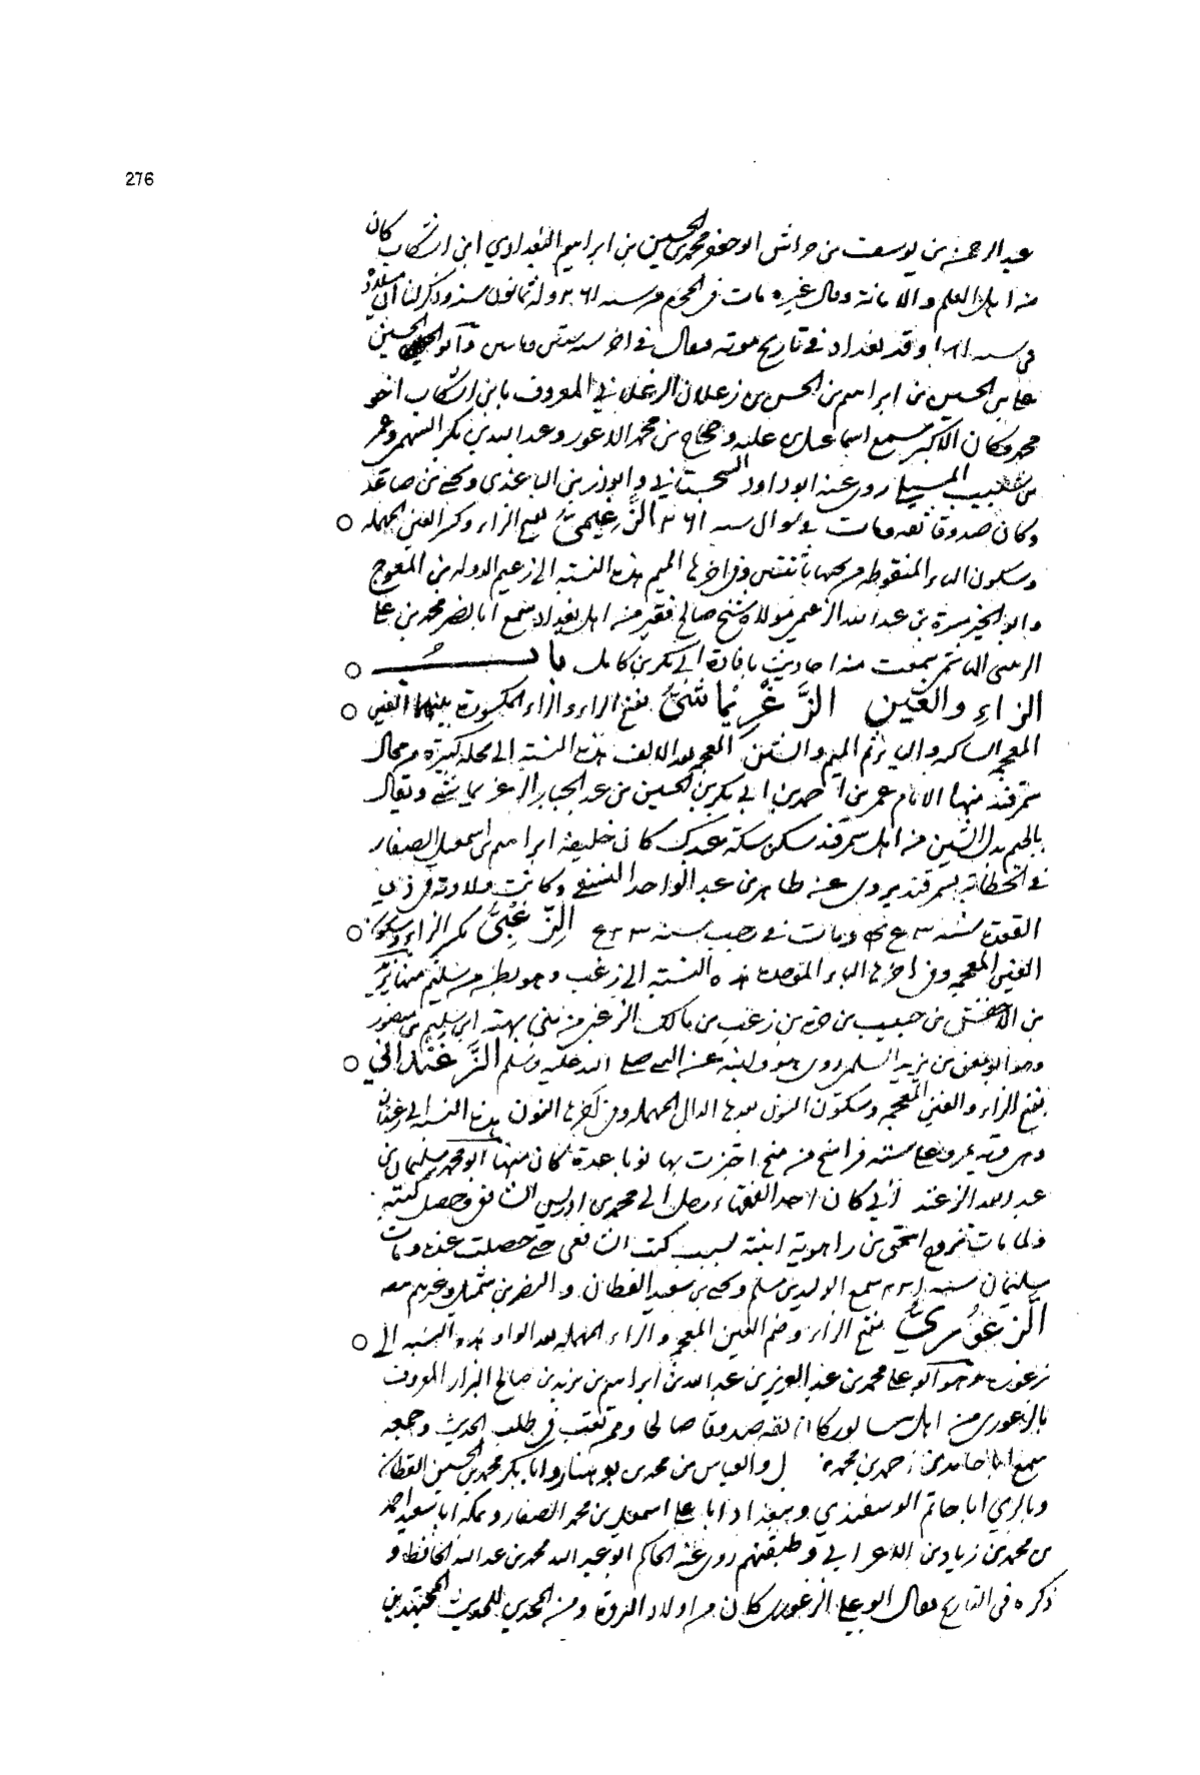 276
عبد الرحمن بن يوسف بن خراش ابو جعفر محمد بن الحسين بن ابراهيم البغدادي ابن اشكاب كان
من اهل العلم والامانة وقال غيره مات في المحرم من سنة ٢٦١ وله ثمانون سنة وذكر لنا ان ميلاده
في سنة ١٨١ وقد بغداد في تاريخ موته فقال في اخر سنة ستين وماتين وابو الحسين
علي بن الحسين بن ابراهيم بن الحسن بن زعلان الزعلاني المعروف بابن اشكاب اخو
محمد وكان الاكبر سمع اسماعيل بن علية وحجاج بن محمد الاعور وعبد الله بن بكر السهمي وعمر
بن شبيب المسلي روى عنه ابو داود السجستاني وابو ذر بن الباغندي ويحيى بن صاعد
وكان صدوقا ثقة ومات في شوال سنة ٢٦١ الزعيمي بفتح الزاء وكسر العين المهملة
وسكون الياء المنقوطة من تحتها باثنتين وفي اخرها الميم هذه النسبة الى زعيم الدولة بن المعوج
وابو الخير مسرة بن عبد الله الزعيمي مولاه شيخ صالح فقير من اهل بغداد سمع ابا نصر محمد بن علي
الهاشمي سمعت منه احاديث بافادة ابي بكر بن كامل باب
الزاء والغين الزغريماشي بفتح الزاء والراء المكسورة بينهما الغين
المعجمة الساكنة والياء ثم الميم والشين المعجمة بعد الالف هذه النسبة الى محلة كبيرة من محال
سمرقند منها الامام عمر بن احمد بن ابي بكر بن الحسين بن عبد الجبار الزغريماشي ويقال
بالجيم بدل الشين من اهل سمرقند سكن سكة عبدك كان خليفة ابراهيم بن اسمعيل الصفار
في الخطابة بسمرقند يروى عنه طاهر بن عبد الواحد النسفي وكانت ولادته في ذي
القعدة سنة ومات في رجب سنة الزغبي بكسر الزاء وسكون
الغين المعجمة وفي اخرها الباء الموحدة هذه النسبة الى زغب وهو بطن من سليم منها يزيد
بن الاخنس بن حبيب بن جرة بن زغب بن مالك الزغبي من بني بهثة ابن سليم بن منصور
وهو ابو معن بن يزيد السلمي روى هو وابنه عن النبي صلى الله عليه وسلم الزغنداني
بفتح الزاء والغين المعجمة وسكون النون بعدها الدال المهملة وفي اخرها النون هذه النسبة الى زغندان
وهي قرية بمرو على ستة فراسخ من منج اجتزت بها نوبا عدة كان منها ابو محمد سليمان بن
عبد الله الزغنداني كان احد الفقهاء رحل الى محمد بن ادريس الشافعي وحصل كتبه
ولما مات تزوج اسحق بن راهوية ابنته بسبب كتب الشافعي حتى حصلت عنده ومات
سليمان سنة ٢٢١ سمع الوليد بن مسلم ويحيى بن سعيد القطان والنضر بن شميل وغيرهم
الزغوري بفتح الزاء وضم الغين المعجمة والراء المهملة بعد الواو هذه النسبة الى
زغورة وهو ابو علي محمد بن عبد العزيز بن عبد الله بن ابراهيم بن يزيد بن صالح البزار المعروف
بالزغوري من اهل نيسابور كان ثقة صدوقا صالحا وممن تعب في طلب الحديث وجمعه
سمع ابا حامد بن احمد بن محمد بن والعباس بن محمد بن وابا بكر محمد بن الحسين القطان
وبالري ابا حاتم الوسقندي وببغداد ابا علي اسمعيل بن محمد الصفار وبمكة ابا سعيد احمد
بن محمد بن زياد بن الاعرابي وطبقتهم روى عنه الحاكم ابو عبد الله محمد بن عبد الله الحافظ و
ذكره في التاريخ فقال ابو علي الزغوري كان من اولاد الثروة ومن المحدثين المجتهدين